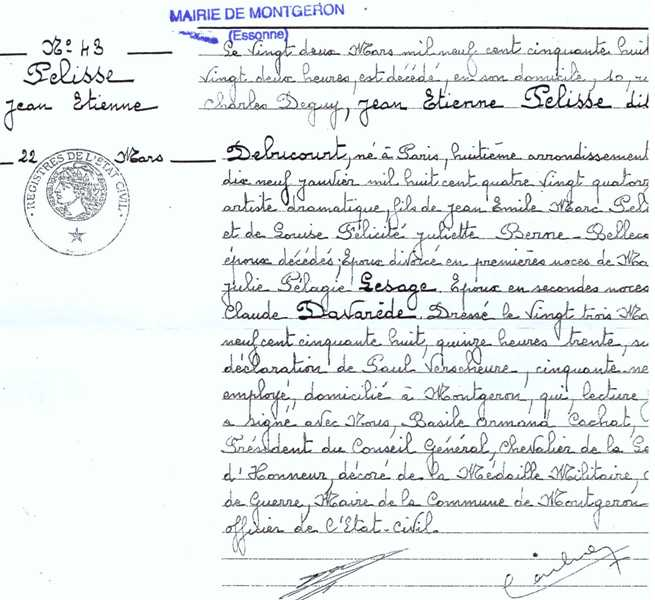 MAIRIE DE MONTGERON
(Essonne)
N° 43
Pelisse
Jean Etienne
22 Mars
REGISTRES DE L'ETAT CIVIL
Le Vingt deux Mars mil neuf cent cinquante huit
Vingt deux heures, est décédé, en son domicile, 10, r
Charles Deguy, Jean Etienne Pelisse dit
Debucourt, né à Paris, huitième arrondissement
dix neuf janvier mil huit cent quatre vingt quator
artiste dramatique, fils de Jean Emile Marc Peli
et de Louise Félicité Juliette Berne-Bellec
époux décédés; Epoux divorcé en premières noces de Ma
Julie Pélagie Lesage. Epoux en secondes noces
Claude Davarède. Dressé le Vingt trois Ma
neuf cent cinquante huit, quinze heures trente, su
déclaration de Paul Verscheure, cinquante ne
employé, domicilié à Montgeron, qui, lecture
a signé avec Nous, Basile Armand Cachat,
Président du Conseil Général, Chevalier de la Lé
d'Honneur, décoré de la Médaille Militaire,
de Guerre, Maire de la Commune de Montgeron
officier de l'Etat-Civil.